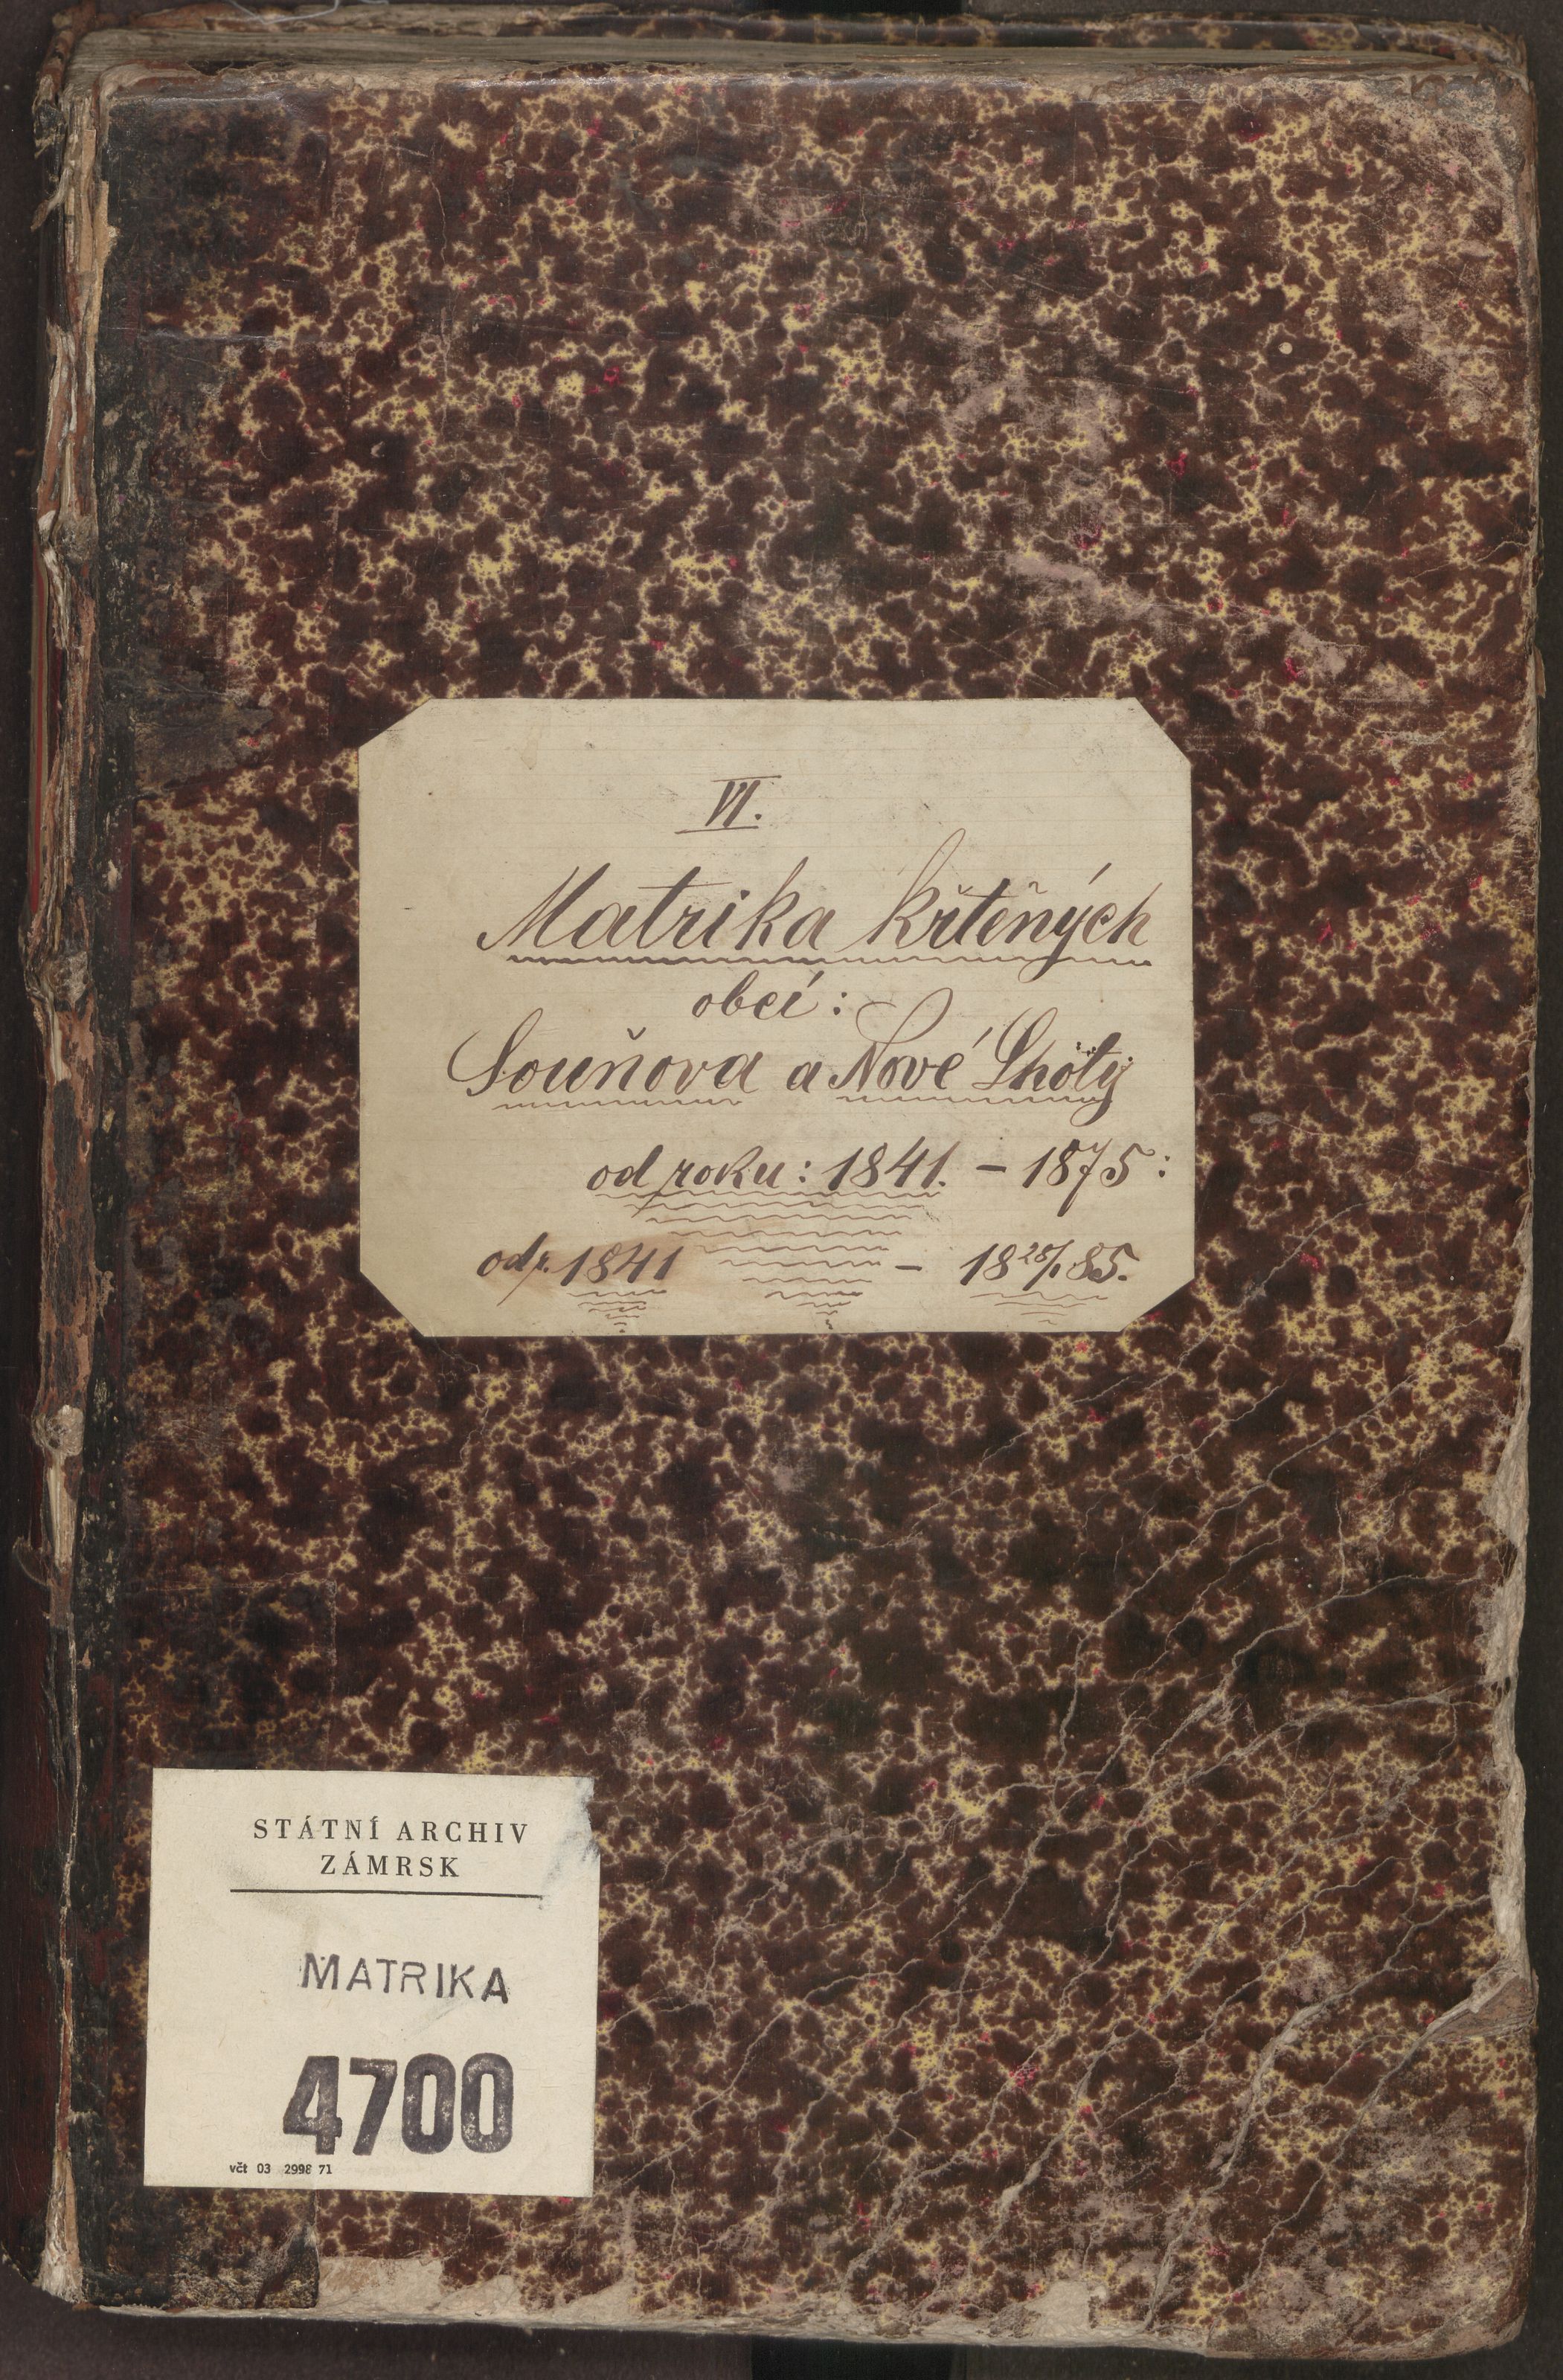 VI.
Matrika křtěných
obcí:
Souňova a Nové Lhoty
od roku: 1841. – 1875:
od r. 1841 – 18 28/1. 85.
STÁTNÍ ARCHIV
ZÁMRSK
MATRIKA
4700
včt 03 2998 71